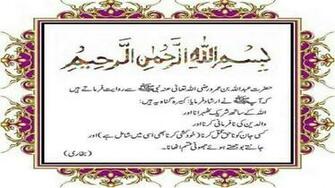 بسم الله الرحمن الرحيم
حضرت عبداللہ بن عمرو رضی اللہ تعالیٰ عنہ نبی ﷺ سے روایت فرماتے ہیں
کہ آپ ﷺ نے ارشاد فرمایا: کبیرہ گناہ یہ ہیں:
اللہ کے ساتھ شریک ٹھہرانا اور
والدین کی نافرمانی کرنا اور
کسی جان کو ناحق قتل کرنا (خودکشی کرنا بھی اسی میں شامل ہے) اور
جانتے بوجھتے ہوئے جھوٹی قسم اٹھانا۔
(بخاری)